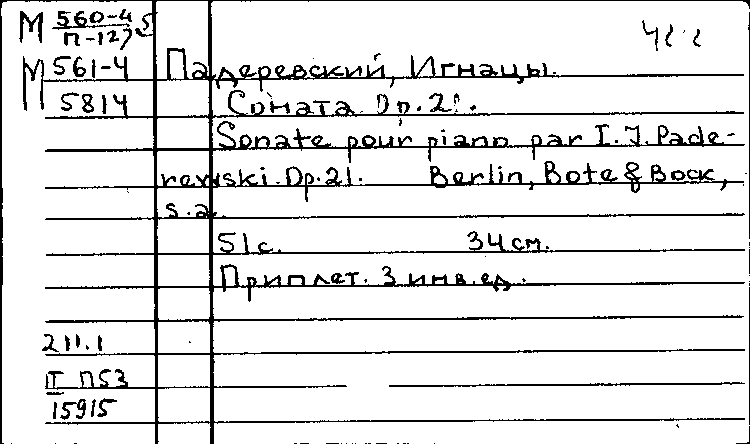 М 560-4
П-127
М 561-4
5814
Падеревский, Игнацы.
Соната Op.21.
Sonate pour piano par I. J. Pade-
rewski. Op.21. Berlin, Bote & Bock,
s.a.
51с. 34см.
Приплет. 3 инв.ед.
211.1
II П53
15915